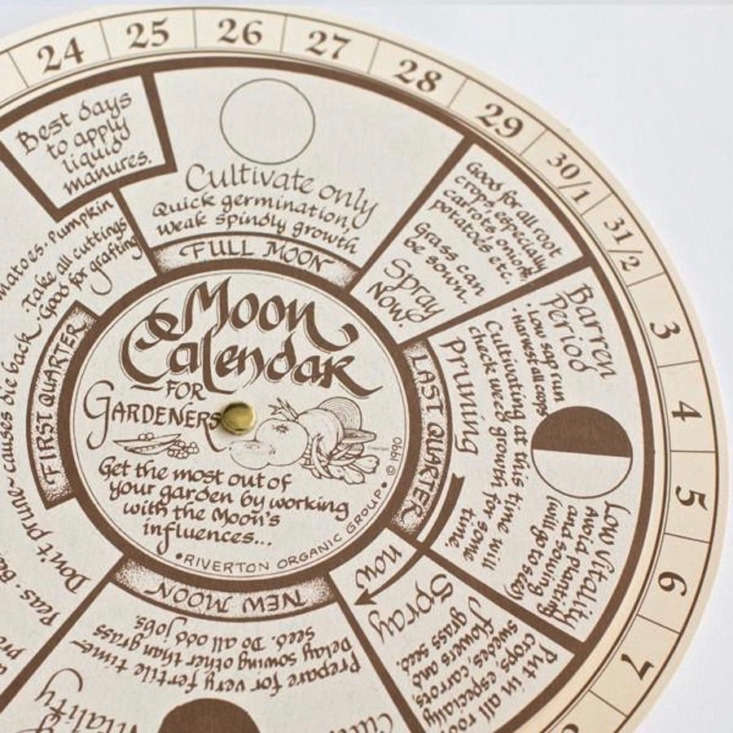 24
25
26
27
28
29
30/1
31/2
3
4
5
6
7
Best days
to apply
liquid
manures.
Cultivate only
Quick germination,
weak spindly growth
FULL MOON
Good for all root
crops especially
carrots, onions
potatoes etc.
Grass can
be sown.
Spray
Now.
Barren
Period
• Low sap run
• Harvest all crops
Cultivating at this time will
check weed growth for some
time.
Pruning
LAST QUARTER
Low vitality
Avoid planting
and sowing
(will go to seed)
now
Spray
Put in all root
crops, especially
swedes, carrots,
flowers and
grass seed.
NEW MOON
Prepare for very fertile times~
Delay sowing other than grass
seed. Do all odd jobs.
vitality
FIRST QUARTER
matoes • Pumpkin
Take all cuttings
• Good for grafting
Don't prune ~ causes die back •
Peas •
Moon
Calendar
FOR
GARDENERS
Get the most out of
your garden by working
with the Moon's
influences...
• RIVERTON ORGANIC GROUP • © 1990